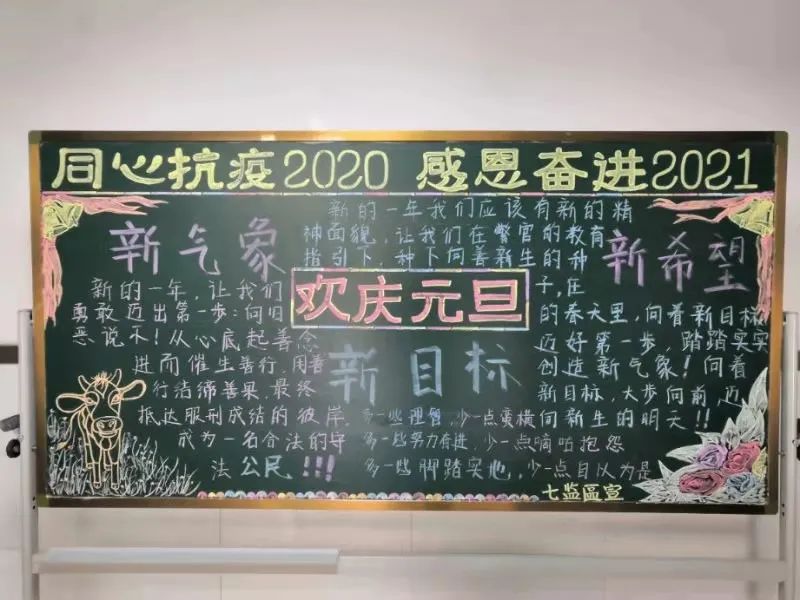 同心抗疫2020 感恩奋进2021
新气象
新的一年,让我们
勇敢迈出第一步:向旧
恶说不!从心底起善念
进而催生善行,用善
行结缔善果,最终
抵达服刑成结的彼岸,
成为一名合法的守
法公民!!!
新的一年我们应该有新的精
神面貌,让我们在警官的教育
指引下,种下向善新生的种
子,在
欢庆元旦
新目标
多一些理智,少一点蛮横
多一些努力奋进,少一点嘀咕抱怨
多一些脚踏实地,少一点自以为是
新希望
的春天里,向着新目标
迈好第一步,踏踏实实
创造新气象!向着
新目标,大步向前,迈
向新生的明天!!
七监區宣